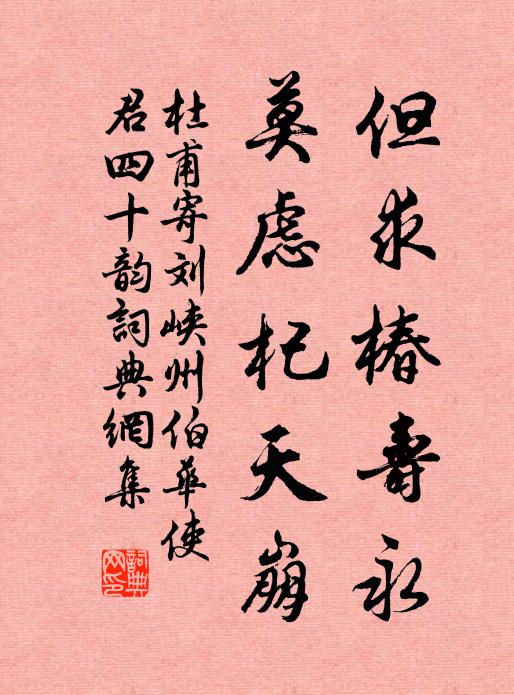 但求椿壽永
莫慮杞天崩
杜甫寄刘峽州伯華使
君四十韵詞典網集
詞典網印